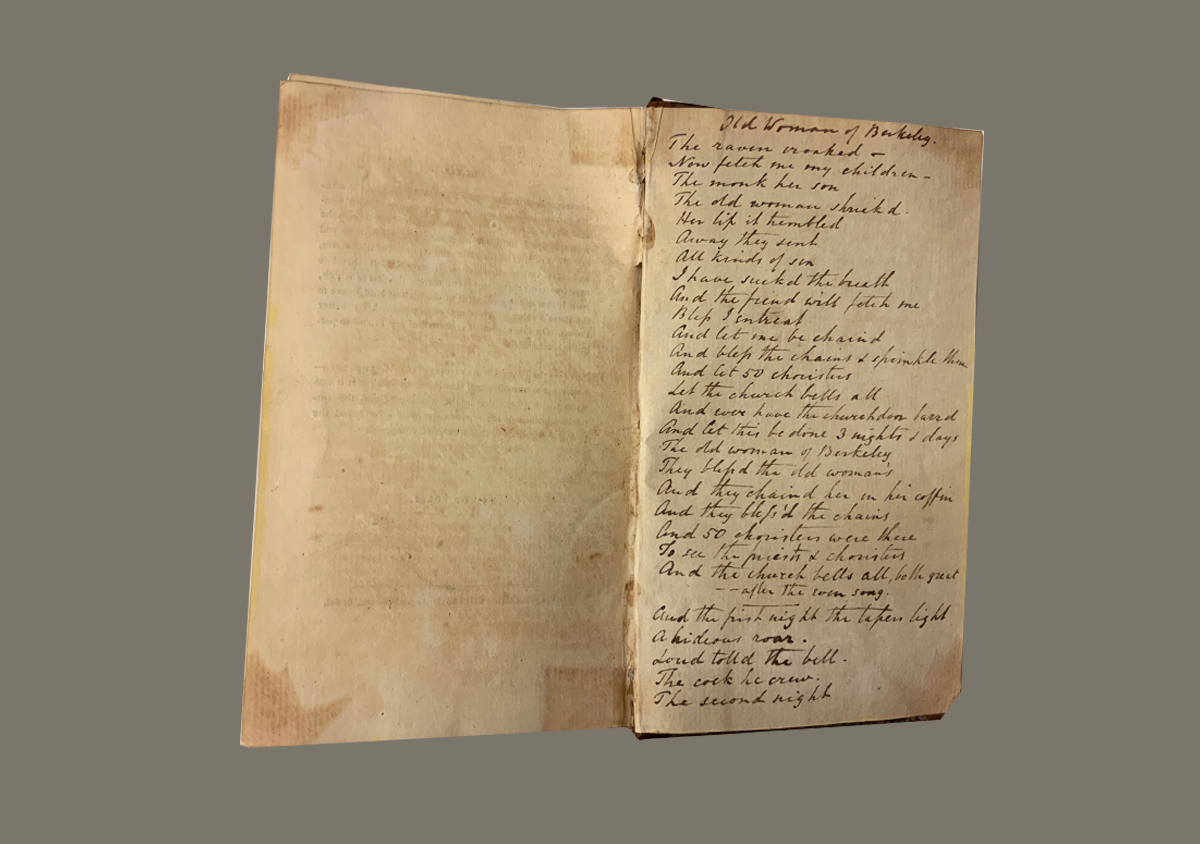 Old Woman of Berkeley.
The raven croaked –
Now fetch me my children –
The monk her son
The old woman shriek'd.
Her lip it trembled
Away they sent
All kinds of sin
I have sucked the breath
And the fiend will fetch me
Bless I entreat
And let me be chaind
And bless the chains & sprinkle them
And let 50 choristers
Let the church bells all
And ever have the churchdoor barrd
And let this be done 3 nights & days
The old woman of Berkeley
They blessd the old woman's
And they chaind her in her coffin
And they bless'd the chains
And 50 choristers were there
To see the priests & choristers
And the church bells all, both great
– – after the even song.
And the first night the tapers light
A hideous roar.
Loud tolld the bell.
The cock he crew.
The second night